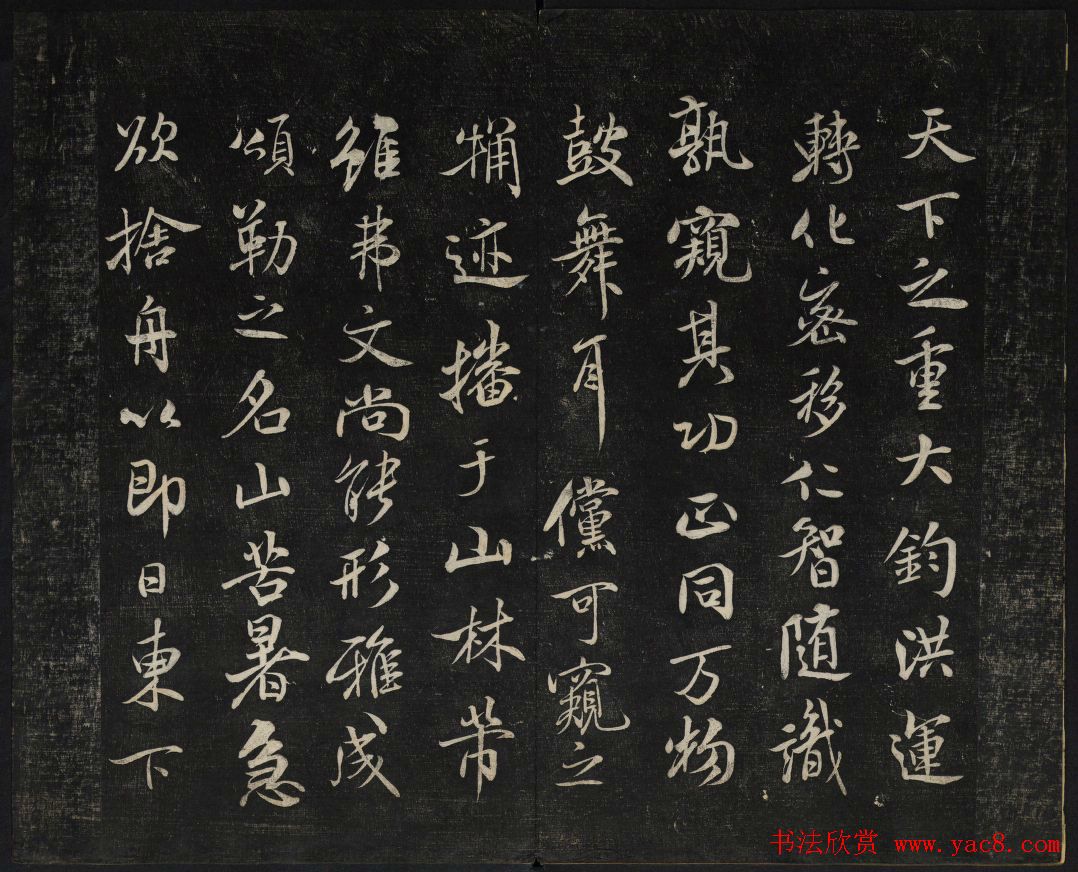 天下之重大鈞洪運
轉化密移仁智随識
孰窺其功正同万物
鼓舞耳儻可窺之
牅迹播于山林带
雖弗文尚能形雅成
頌勒之名山苦暑急
欲捨舟以即日東下
书法欣赏 www.yac8.com